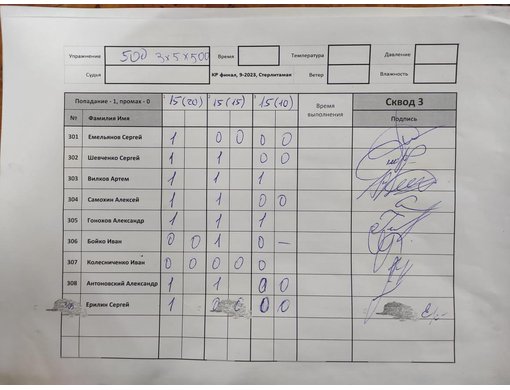 Упражнение 500 3x5x500 Время Температура Давление
Судья КР финал, 9-2023, Стерлитамак Ветер Влажность
Попадание - 1, промах - 0 1 15(20) 2 15(15) 3 15(10) Время выполнения Сквод 3
№ Фамилия Имя Подпись
301 Емельянов Сергей 1 0 0 0 0
302 Шевченко Сергей 1 1 0 0
303 Вилков Артем 1 1 1
304 Самохин Алексей 1 1 0 0
305 Гоноков Александр 1 1 1
306 Бойко Иван 0 0 1 0 —
307 Колесниченко Иван 0 0 0 0 0
308 Антоновский Александр 1 1 0 0
Ерилин Сергей 1 0 0